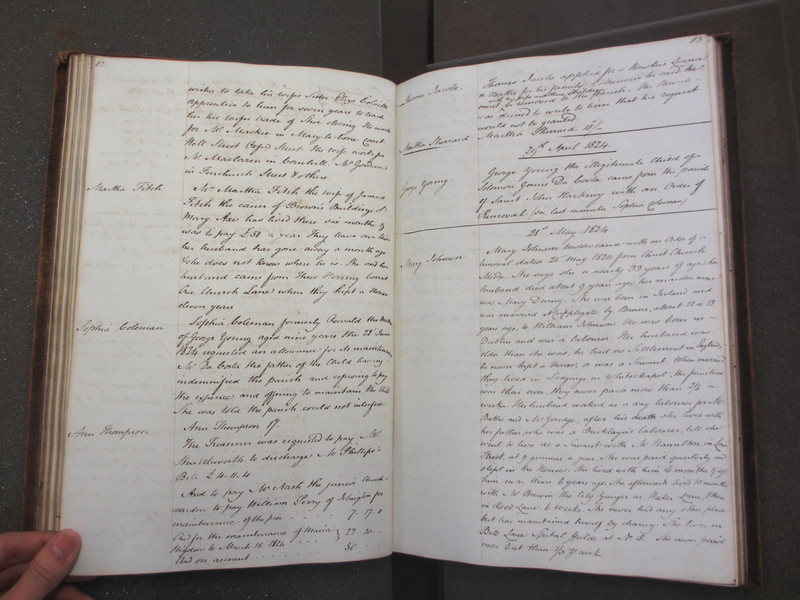 82
wishes to take his wifes Sister Eliza
apprentice to him for seven years to learn
his wifes trade of Shoe closing He works
for Mr Mackie in Mary le bone Court
Well Street Oxford Street His wife works for
Mr Maclaren in Cornhill, Mr Godfrey
in Fenchurch Street & others
Martha Fitch
Mrs Martha Fitch the wife of James
Fitch the corner of Browns Buildings St
Mary Axe has lived there six months &
was to pay £50 a year They leave one
her husband has gone away a month ago
& she does not know where he is. She and her
husband came from Three Herring Court
Cree Church Lane where they kept a House
eleven years
Sophia Coleman
Sophia Coleman formerly Oswald the Mother
of George Young aged nine years the 28 June
1824 requested an allowance for its maintenance
Mr Da Costa the father of the Child having
indemnified the parish and refusing to pay
the expence and offering to maintain the Child
She was told the parish could not interfere
Ann Thompson
Ann Thompson 17.
The Treasurer was requested to pay Mr
Shuttleworth to discharge Mr Phillips's
Bill £ 4. 11. 4.
And to pay Mr Nash the junior Church
warden to pay William Perry of Islington for
maintenance of the poor 7. 17. 0
And for the maintenance of Maria
Higdon to March 15 1824 22. 10. -
And on account 50
83
Thomas Jacobs
Thomas Jacobs applied for a
a Clothes for his
must be removed to the parish. The Church
was desired to write to him that his request
would not be granted
Martha Sherrard
Martha Sherrard 10/-
29th April 1824.
George Young
George Young the Illegitimate Child of
Solomon Gomes Da Costa came from the parish
of Saint John Hackney with an Order of
Removal (see last minute Sophia Coleman)
28th May 1824
Mary Johnson
Mary Johnson Widow came with an Order of re
moval dated 28 May 1824 from Christ Church
Middx. She says she is nearly 33 years of age, her
husband died about 9 years ago, her maiden name
was Mary Denny. She was born in Ireland and
was married at Cripplegate by Banns, about 12 or 13
years ago, to William Johnson. He was born in
Dublin and was a labourer. Her husband was
older than she was, he had no Settlement in England,
he never kept a house, or was a Servant. When married
they lived in Lodgings in Whitechapel, the furniture
was their own, they never paid more than 2/6 a
week. Her husband worked as a day labourer for Mr
Bothe and Mr Gorelys, after his death she lived with
her father, who was a Bricklayers labourer, till she
went to live as a Servant with Mr Hamilton in Lime
Street, at 9 guineas a year. She was paid quarterly and
slept in the House. She lived with him 16 months & left
him more than 6 years ago. She afterwards lived 10 months
with Mr Brown the City Ganger in Water Lane, & then
in Rood Lane 6 weeks. She never had any other place
but has maintained herself by charing. She lives in
Bell Lane Spital fields at No 3. She never paid
more rent than 1/6 p week